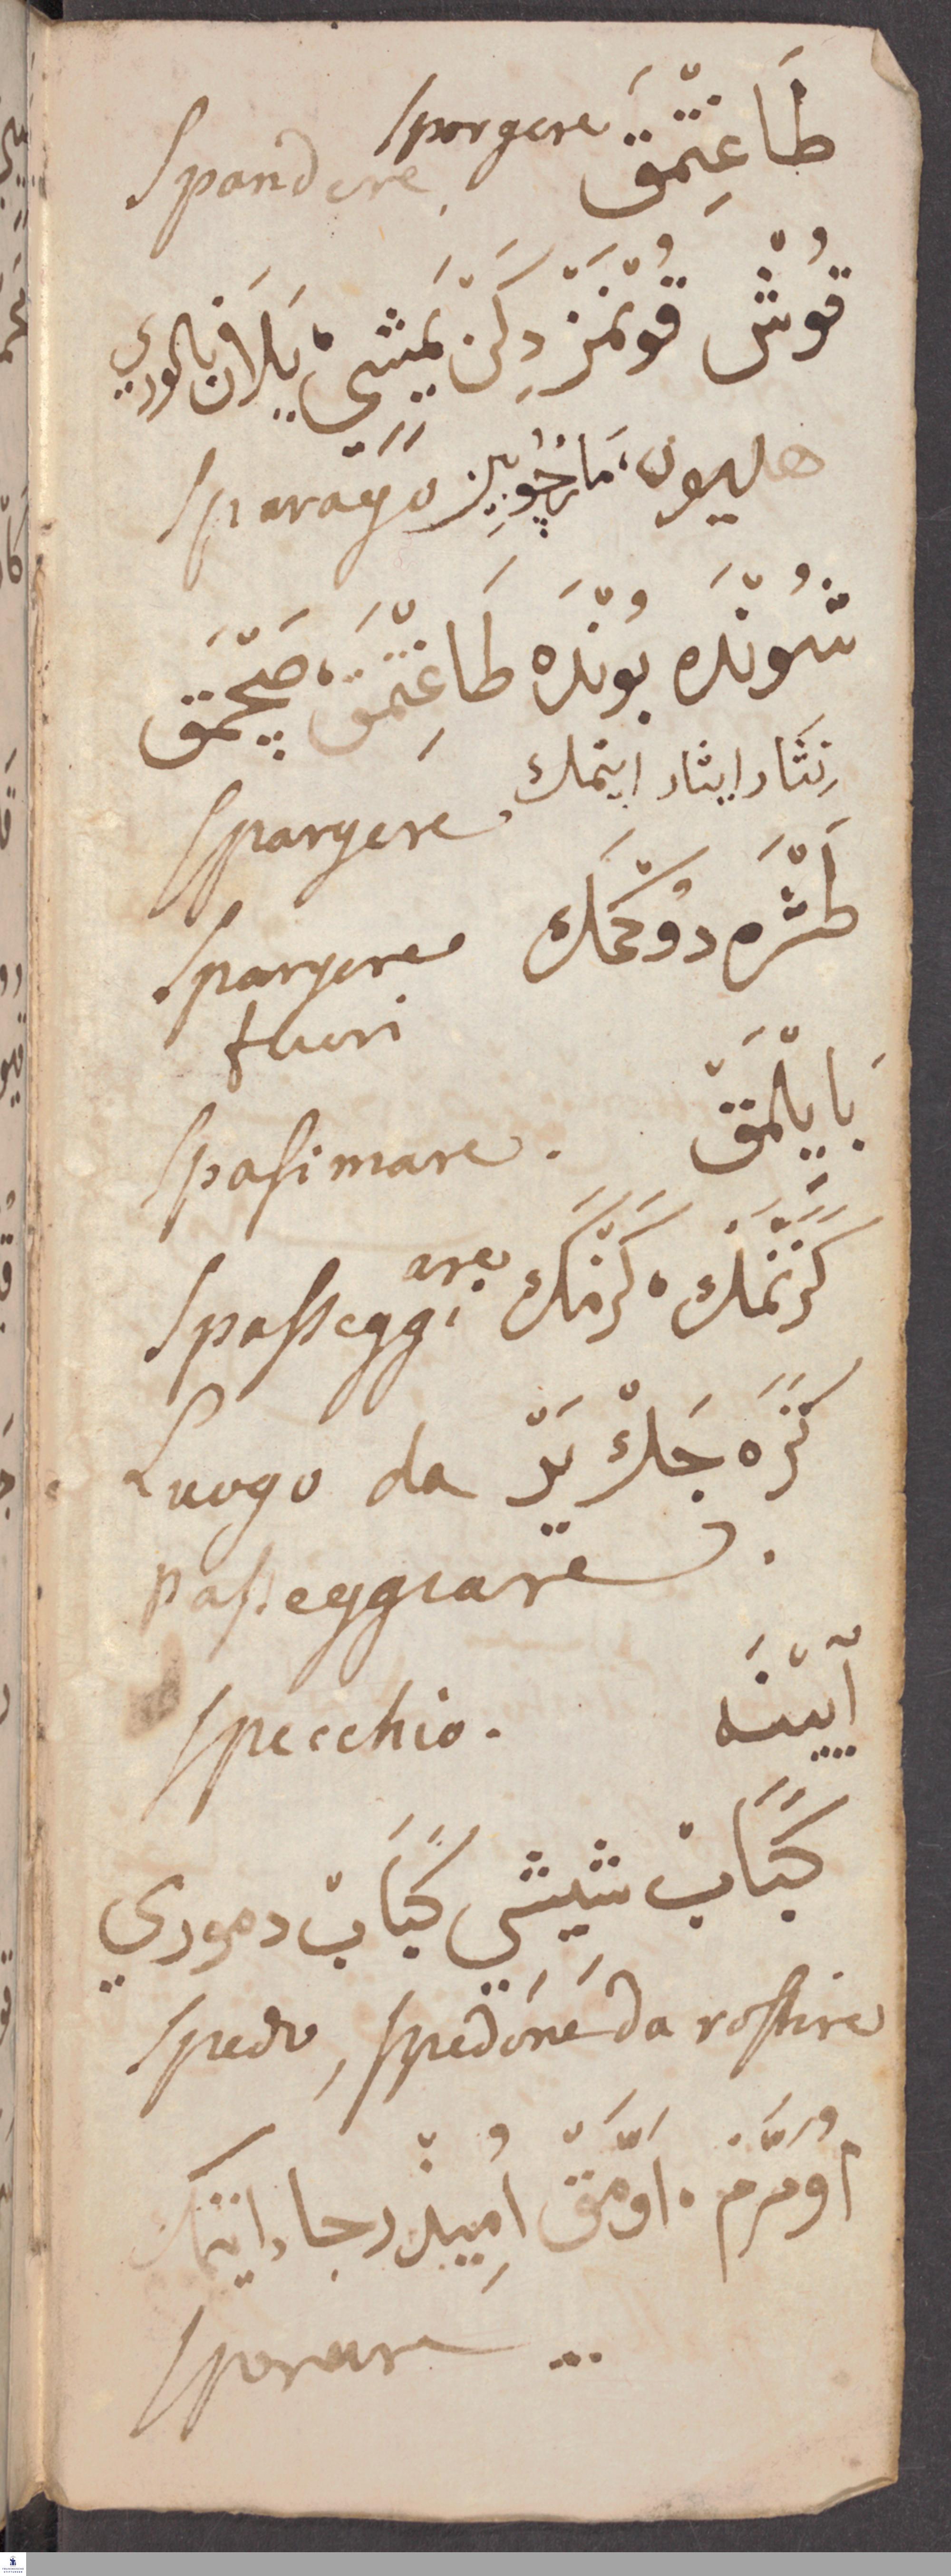 طَاغِتْمَقْ sporgere
Spandere.
قُوشْ قُونْمَزْ دِكَنْ يَمِشِي، يَلَانْ
هليون، مارچوبه Sparago
شُونْدَه بُونْدَه طَاغِتْمَقْ، صَچْمَقْ
نِثَار ايثار ايتمك
Spargere.
طَشْرَه دُوكْمَكْ Spargere
fuori
بَايِلْمَقْ Spasimare.
كَزِنْمَكْ، كَزْمَكْ Spasseggiare
كَزَه جَكْ يَرْ Luogo da
passeggiare.
آيِينَه specchio.
كَبَابْ شيشي كَبَابْ دموري
spedo, spedone da rostire
اُومَرَمْ، اُومَقْ اُمِيدْ رجا ايتمك
sperare